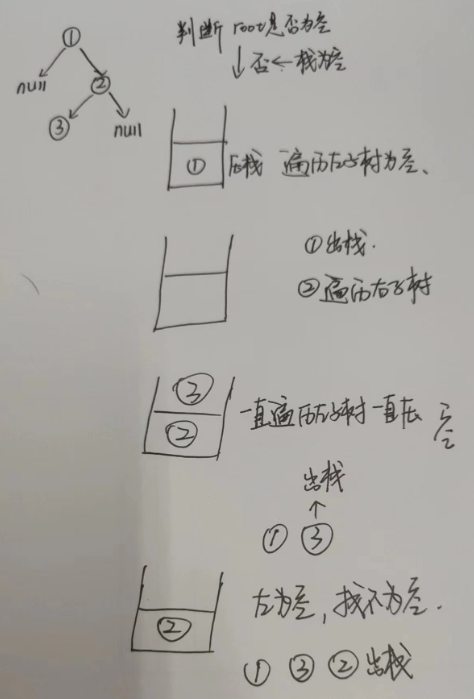 ①
null ②
③ null
判断 root是否为空
↓否←栈为空
① 压栈 遍历左子树为空、
①出栈.
②遍历右子树
③
② 一直遍历左子树一直压 空
出栈
↑
① ③
② 左为空,栈不为空.
① ③ ② 出栈